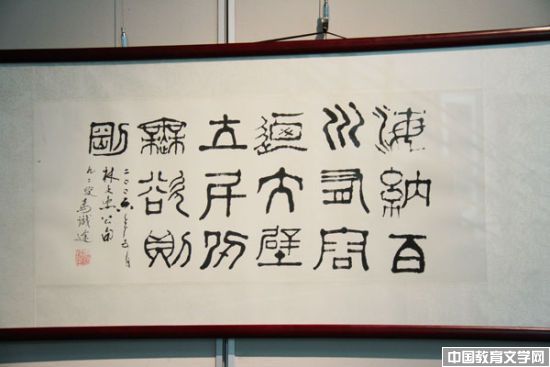 海納百
川有容
迺大壁
立千仞
無欲則
剛
二〇〇六年
林文忠公句
九二叟馬識途
中国教育文学网